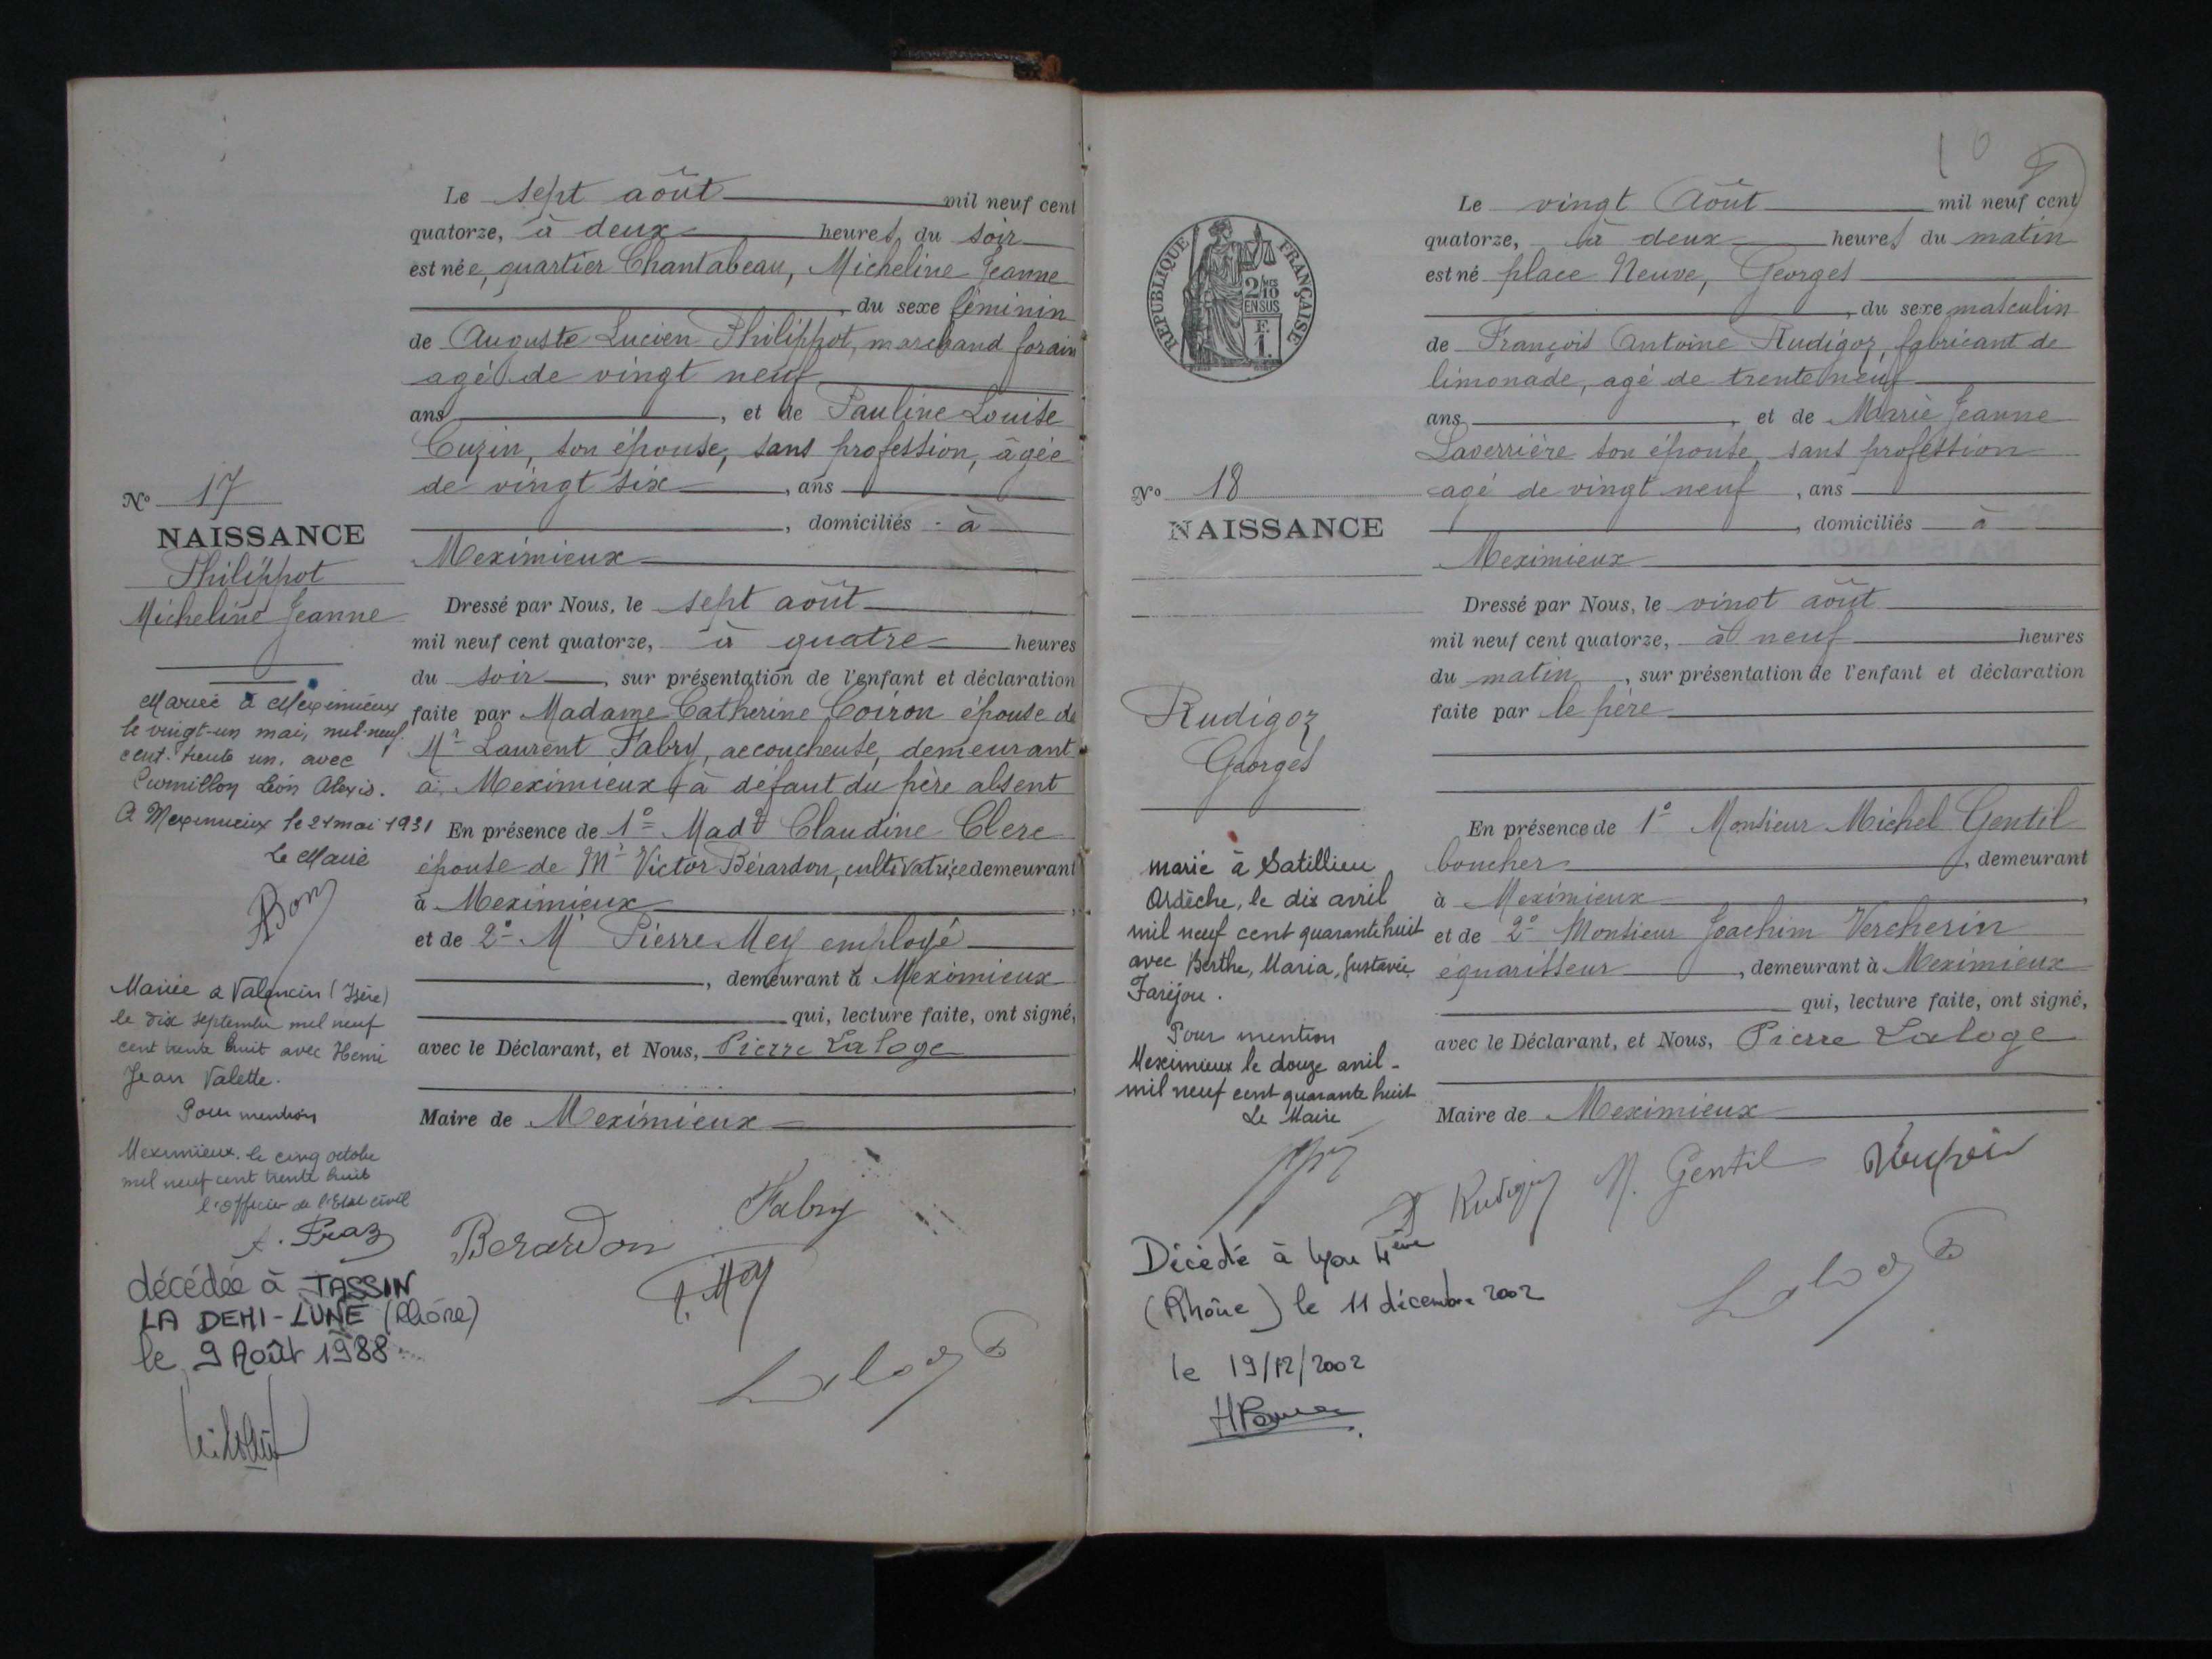 Le sept août mil neuf cent
quatorze, à deux heures du soir
est née, quartier Chantabeau, Micheline Jeanne
, du sexe féminin
de Auguste Lucien Philippot, marchand forain
agé de vingt neuf
ans , et de Pauline Louise
Cuzin, son épouse, sans profession, âgée
de vingt six , ans
, domiciliés à
Meximieux
Dressé par Nous, le sept août
mil neuf cent quatorze, à quatre heures
du soir , sur présentation de l'enfant et déclaration
faite par Madame Catherine Coiron épouse de
Mr Laurent Fabry, accoucheuse, demeurant
à Meximieux à défaut du père absent
En présence de 1° Made Claudine Clerc
épouse de Mr Victor Bérardon, cultivatrice demeurant
à Meximieux
et de 2° Mr Pierre Mey employé
, demeurant à Meximieux
qui, lecture faite, ont signé,
avec le Déclarant, et Nous, Pierre Laloge
Maire de Meximieux
Berardon
Fabry
P. Mey
Laloge
N° 17
NAISSANCE
Philippot
Micheline Jeanne
Mariée à Meximieux
le vingt-un mai, mil-neuf
cent-trente un, avec
Curnillon Léon Alexis.
A Meximieux le 21 mai 1931
Le Maire
Mariée a Valencin (Isère)
le dix septembre mil neuf
cent trente huit avec Henri
Jean Valette.
Pour mention
Meximieux, le cinq octobre
mil neuf cent trente huit
l'Officier de l'Etat civil
décédée à TASSIN
LA DEMI-LUNE (Rhône)
le 9 Août 1988
Le vingt Août mil neuf cent
quatorze, à deux heures du matin
est né place Neuve, Georges
, du sexe masculin
de François Antoine Rudigoz, fabricant de
limonade, agé de trente neuf
ans , et de Marie Jeanne
Laverrière son épouse, sans profession
agé de vingt neuf , ans
, domiciliés à
Meximieux
Dressé par Nous, le vingt août
mil neuf cent quatorze, à neuf heures
du matin , sur présentation de l'enfant et déclaration
faite par le père
En présence de 1° Monsieur Michel Gentil
boucher , demeurant
à Meximieux ,
et de 2° Monsieur Joachim Vercherin
équarisseur , demeurant à Meximieux
qui, lecture faite, ont signé,
avec le Déclarant, et Nous, Pierre Laloge
Maire de Meximieux
Rudigoz
M. Gentil
Laloge
REPUBLIQUE FRANÇAISE
2/10
EN SUS
F.
1.
N° 18
NAISSANCE
Rudigoz
Georges
marié à Satillieu
Ardèche, le dix avril
mil neuf cent quarante huit
avec Berthe, Maria, Gustavie,
Faréjou.
Pour mention
Meximieux le douze avril -
mil neuf cent quarante huit
Le Maire
Décédé à Lyon 4ème
(Rhône) le 11 décembre 2002
le 19/12/2002